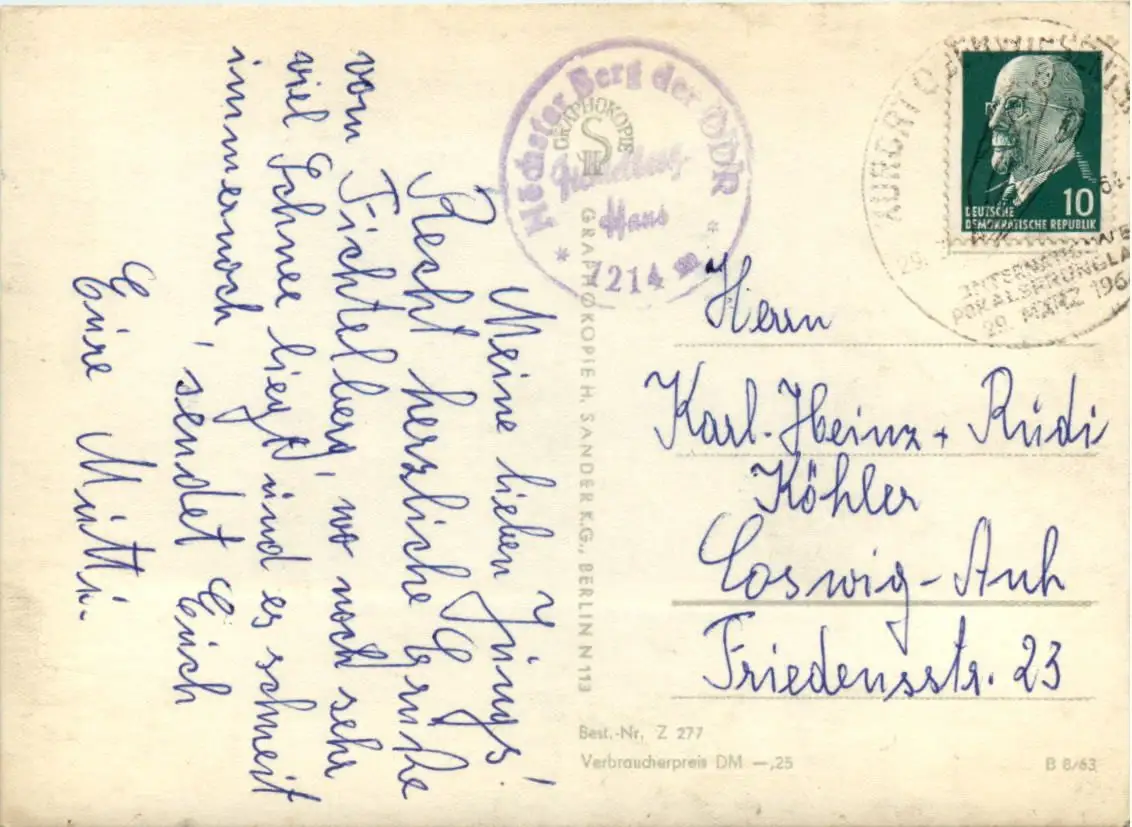 Meine lieben Jungs!
Recht herzliche Grüße
vom Fichtelberg, wo noch sehr
viel Schnee liegt und es schneit
immernoch, sendet Euch
Eure Mutti.
Höchster Berg der DDR
Haus
* 1214 m *
GRAPHOKOPIE
H S
GRAPHOKOPIE H. SANDER K.G., BERLIN N 113
KURORT OBERWIESENTHAL
DEUTSCHE
DEMOKRATISCHE REPUBLIK
10
29. MÄRZ 196
Herrn
Karl-Heinz + Rudi
Köhler
Coswig-Anh
Friedensstr. 23
Best.-Nr. Z 277
Verbraucherpreis DM —,25
B 8/63